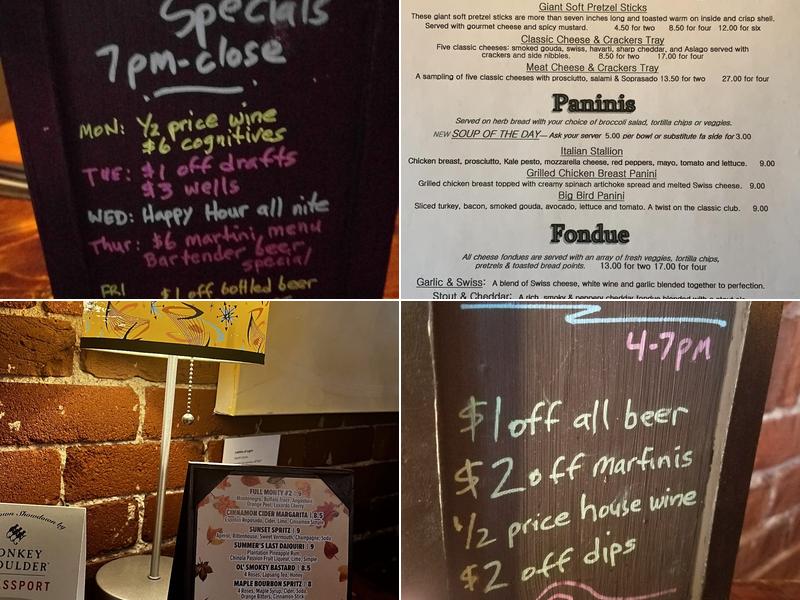 Specials
7pm-close
MON: 1/2 price wine
$6 cognitives
TUE: $1 off drafts
$3 wells
WED: Happy Hour all nite
Thur: $6 martini menu
Bartender beer
special
FRI $1 off bottled beer
Giant Soft Pretzel Sticks
These giant soft pretzel sticks are more than seven inches long and toasted warm on inside and crisp shell.
Served with gourmet cheese and spicy mustard. 4.50 for two 8.50 for four 12.00 for six
Classic Cheese & Crackers Tray
Five classic cheeses: smoked gouda, swiss, havarti, sharp cheddar, and Asiago served with
crackers and side nibbles. 8.50 for two 17.00 for four
Meat Cheese & Crackers Tray
A sampling of five classic cheeses with prosciutto, salami & Soprasado 13.50 for two 27.00 for four
Paninis
Served on herb bread with your choice of broccoli salad, tortilla chips or veggies.
NEW SOUP OF THE DAY— Ask your server 5.00 per bowl or substitute fa side for 3.00
Italian Stallion
Chicken breast, prosciutto, Kale pesto, mozzarella cheese, red peppers, mayo, tomato and lettuce. 9.00
Grilled Chicken Breast Panini
Grilled chicken breast topped with creamy spinach artichoke spread and melted Swiss cheese. 9.00
Big Bird Panini
Sliced turkey, bacon, smoked gouda, avocado, lettuce and tomato. A twist on the classic club. 9.00
Fondue
All cheese fondues are served with an array of fresh veggies, tortilla chips,
pretzels & toasted bread points. 13.00 for two 17.00 for four
Garlic & Swiss: A blend of Swiss cheese, white wine and garlic blended together to perfection.
Stout & Cheddar: A rich, smoky & peppery cheddar fondue blended with a stout
Showdown by
ONKEY
OULDER
ASSPORT
FULL MONTY #2 | 9
Montenegro, Buffalo Trace, Angostura
Orange Peel, Luxardo Cherry
CINNAMON CIDER MARGARITA | 8.5
Espolon Reposado, Cider, Lime, Cinnamon Simple
SUNSET SPRITZ | 9
Aperol, Rittenhouse, Sweet Vermouth, Champagne, Soda
SUMMER'S LAST DAIQUIRI | 9
Plantation Pineapple Rum,
Chinola Passion Fruit Liqueur, Lime, Simple
OL' SMOKEY BASTARD | 8.5
4 Roses, Lapsang Tea, Honey
MAPLE BOURBON SPRITZ | 8
4 Roses, Maple Syrup, Cider, Soda
Orange Bitters, Cinnamon Stick
4-7pm
$1 off all beer
$2 off martinis
1/2 price house wine
$2 off dips